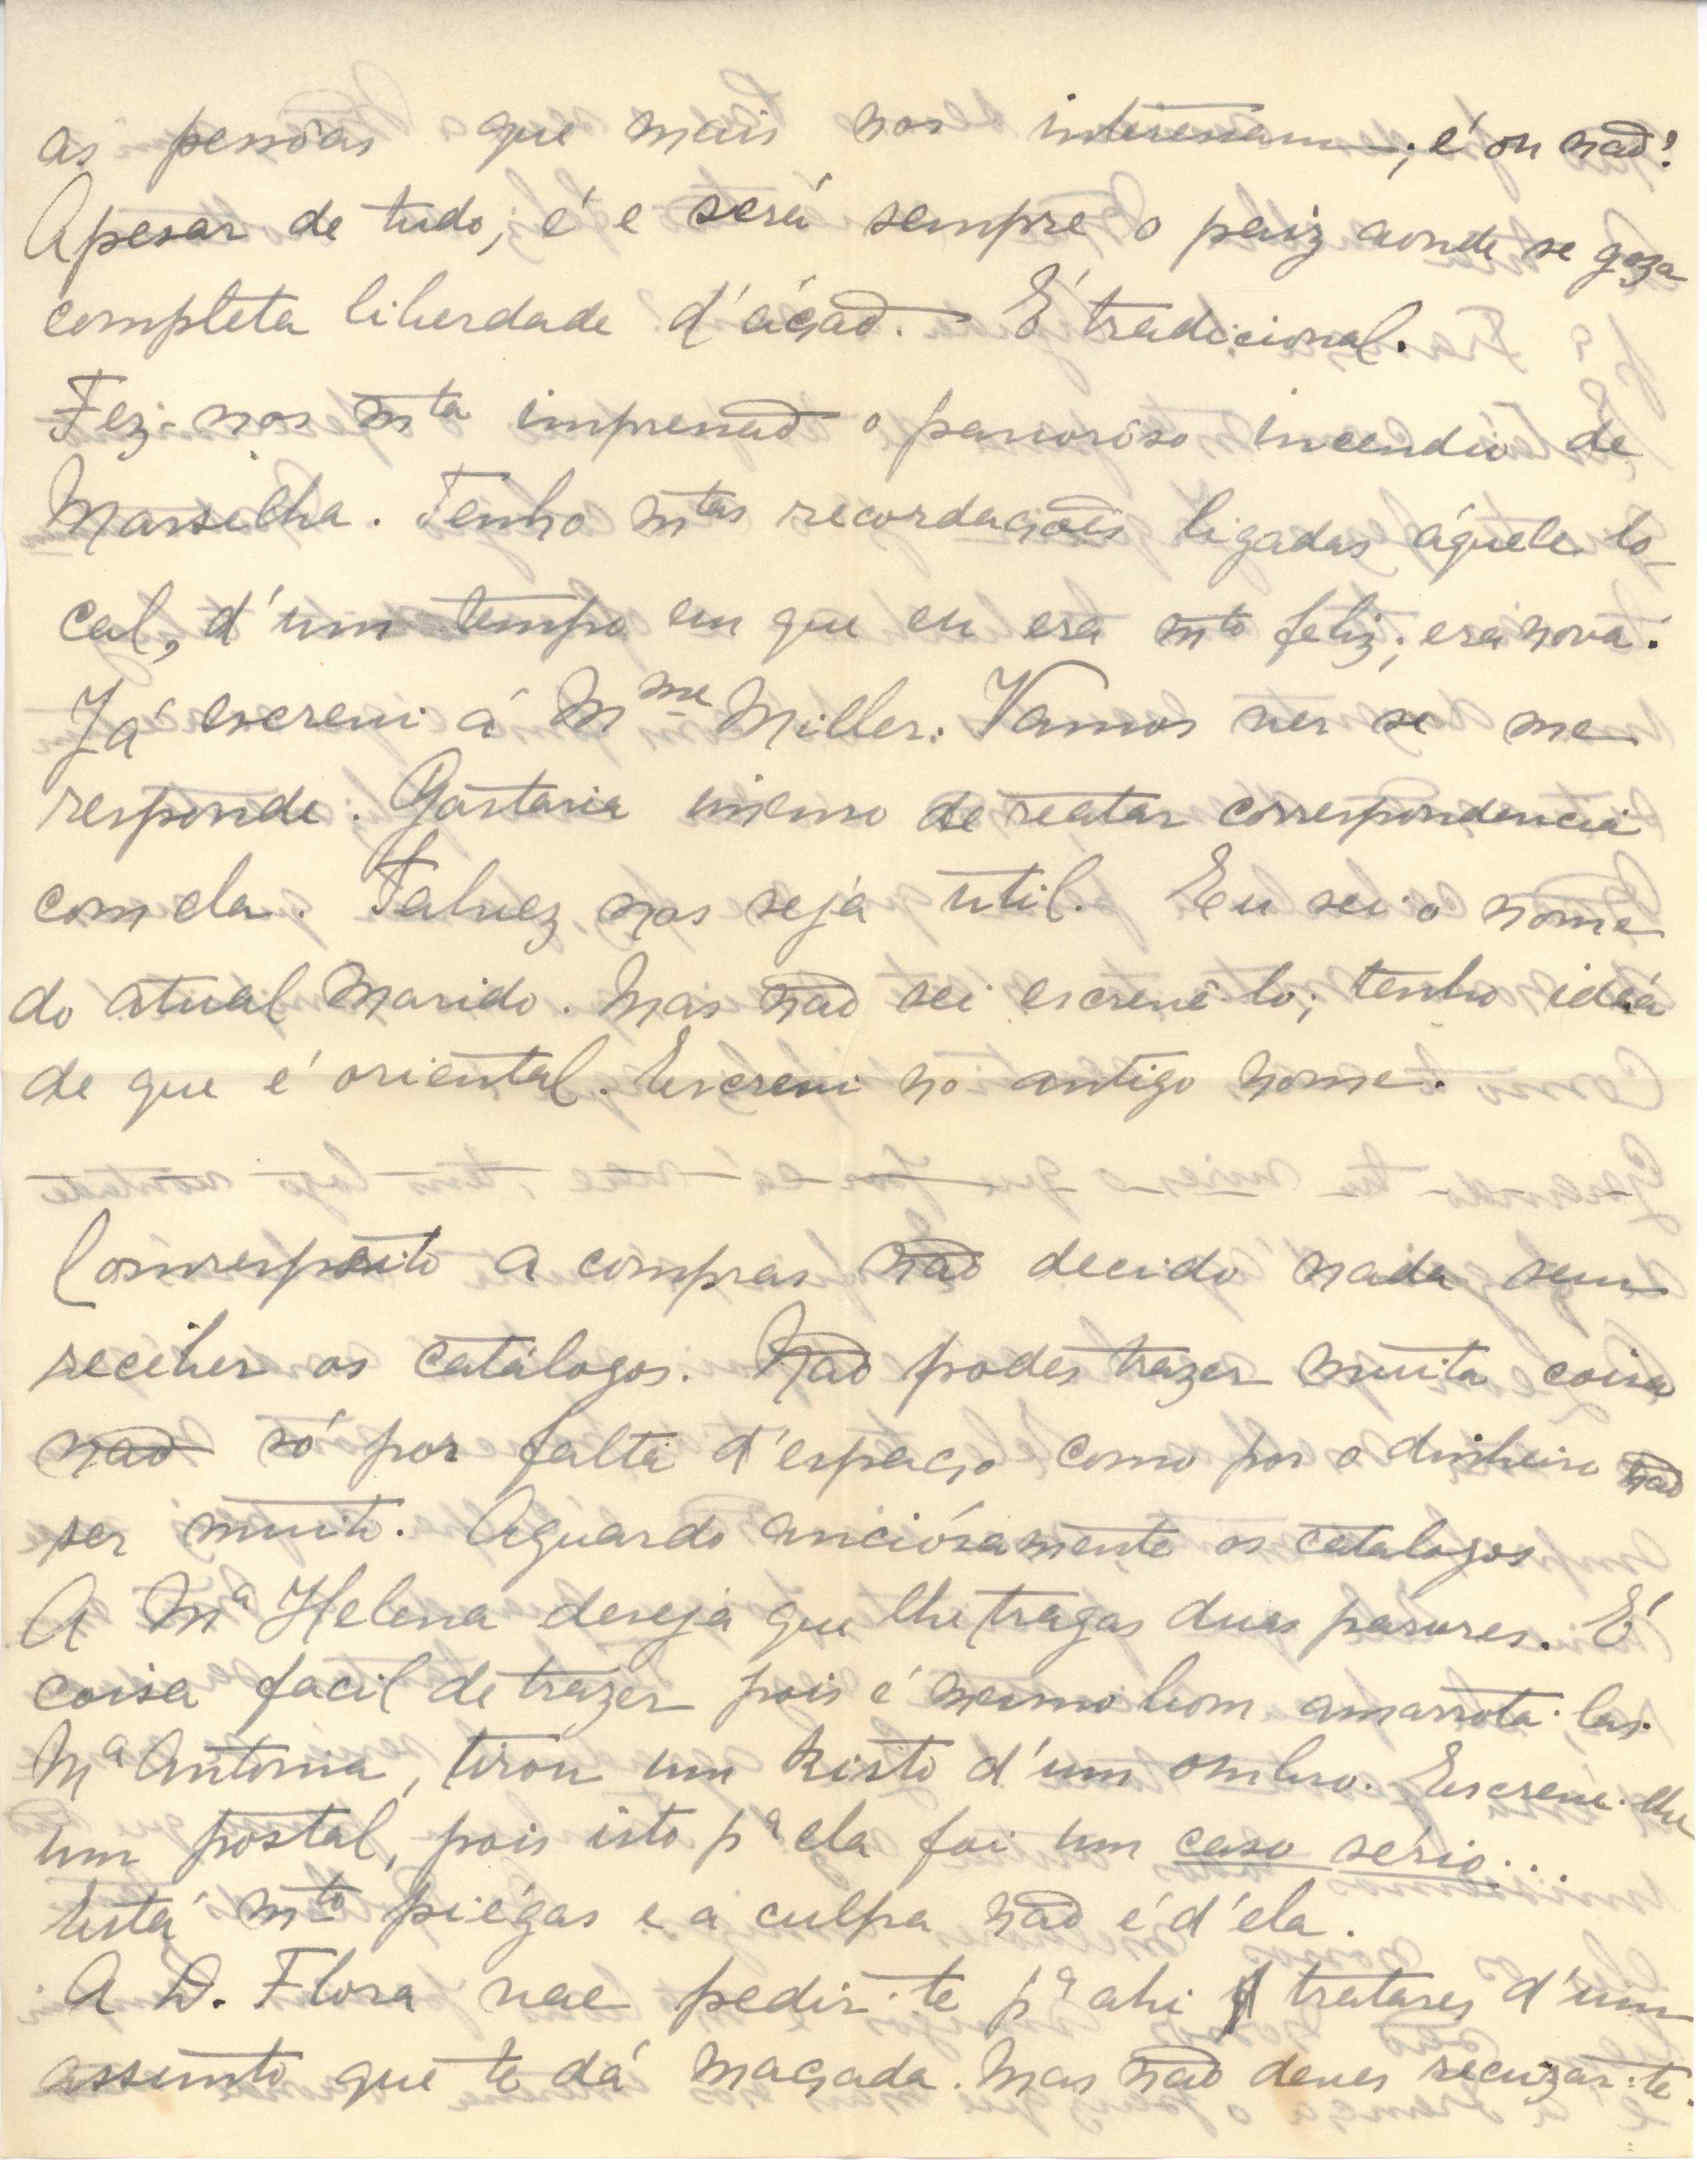 as pessôas que mais nos interessam; é ou não?
Apesar de tudo, é e será sempre o paiz aonde se goza
completa liberdade d'áção. É tradicional.
Fez-nos mta impressão o pavoroso incendio de
Marselha. Tenho mtas recordações ligadas áquele lo-
cal, d'um tempo em que eu era mto feliz; era nova!
Já escrevi á Mme Miller. Vamos ver se me
responde. Gostaria imenso de reatar correspondencia
com ela. Talvez nos seja util. Eu sei o nome
do atual marido. Mas não sei escrevê-lo; tenho ideia
de que é oriental. Escrevi no antigo nome.
Com respeito a compras não decido nada sem
receber os catálogos. Não podes trazer muita coisa
não só por falta d'espaço como por o dinheiro não
ser muito. Aguardo anciósamente os catalogos
A Mª Helena deseja que lhe tragas duas parures. É
coisa facil de trazer pois é mesmo bom amarrota-las.
Mª Antonia, tirou um kisto d'um ombro. Escreve-lhe
um postal, pois isto pª ela foi um caso sério...
Está mto piégas e a culpa não é d'éla.
A D. Flora vae pedir-te pª ahi tratares d'um
assunto que te dá maçada. Mas não deves recuzar-te.